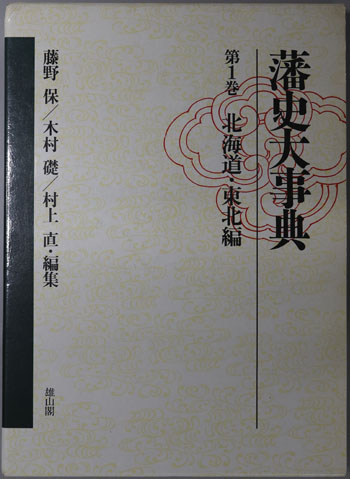 藩史大事典
第1巻 北海道・東北編
藤野 保／木村 礎／村上 直・編集
雄山閣